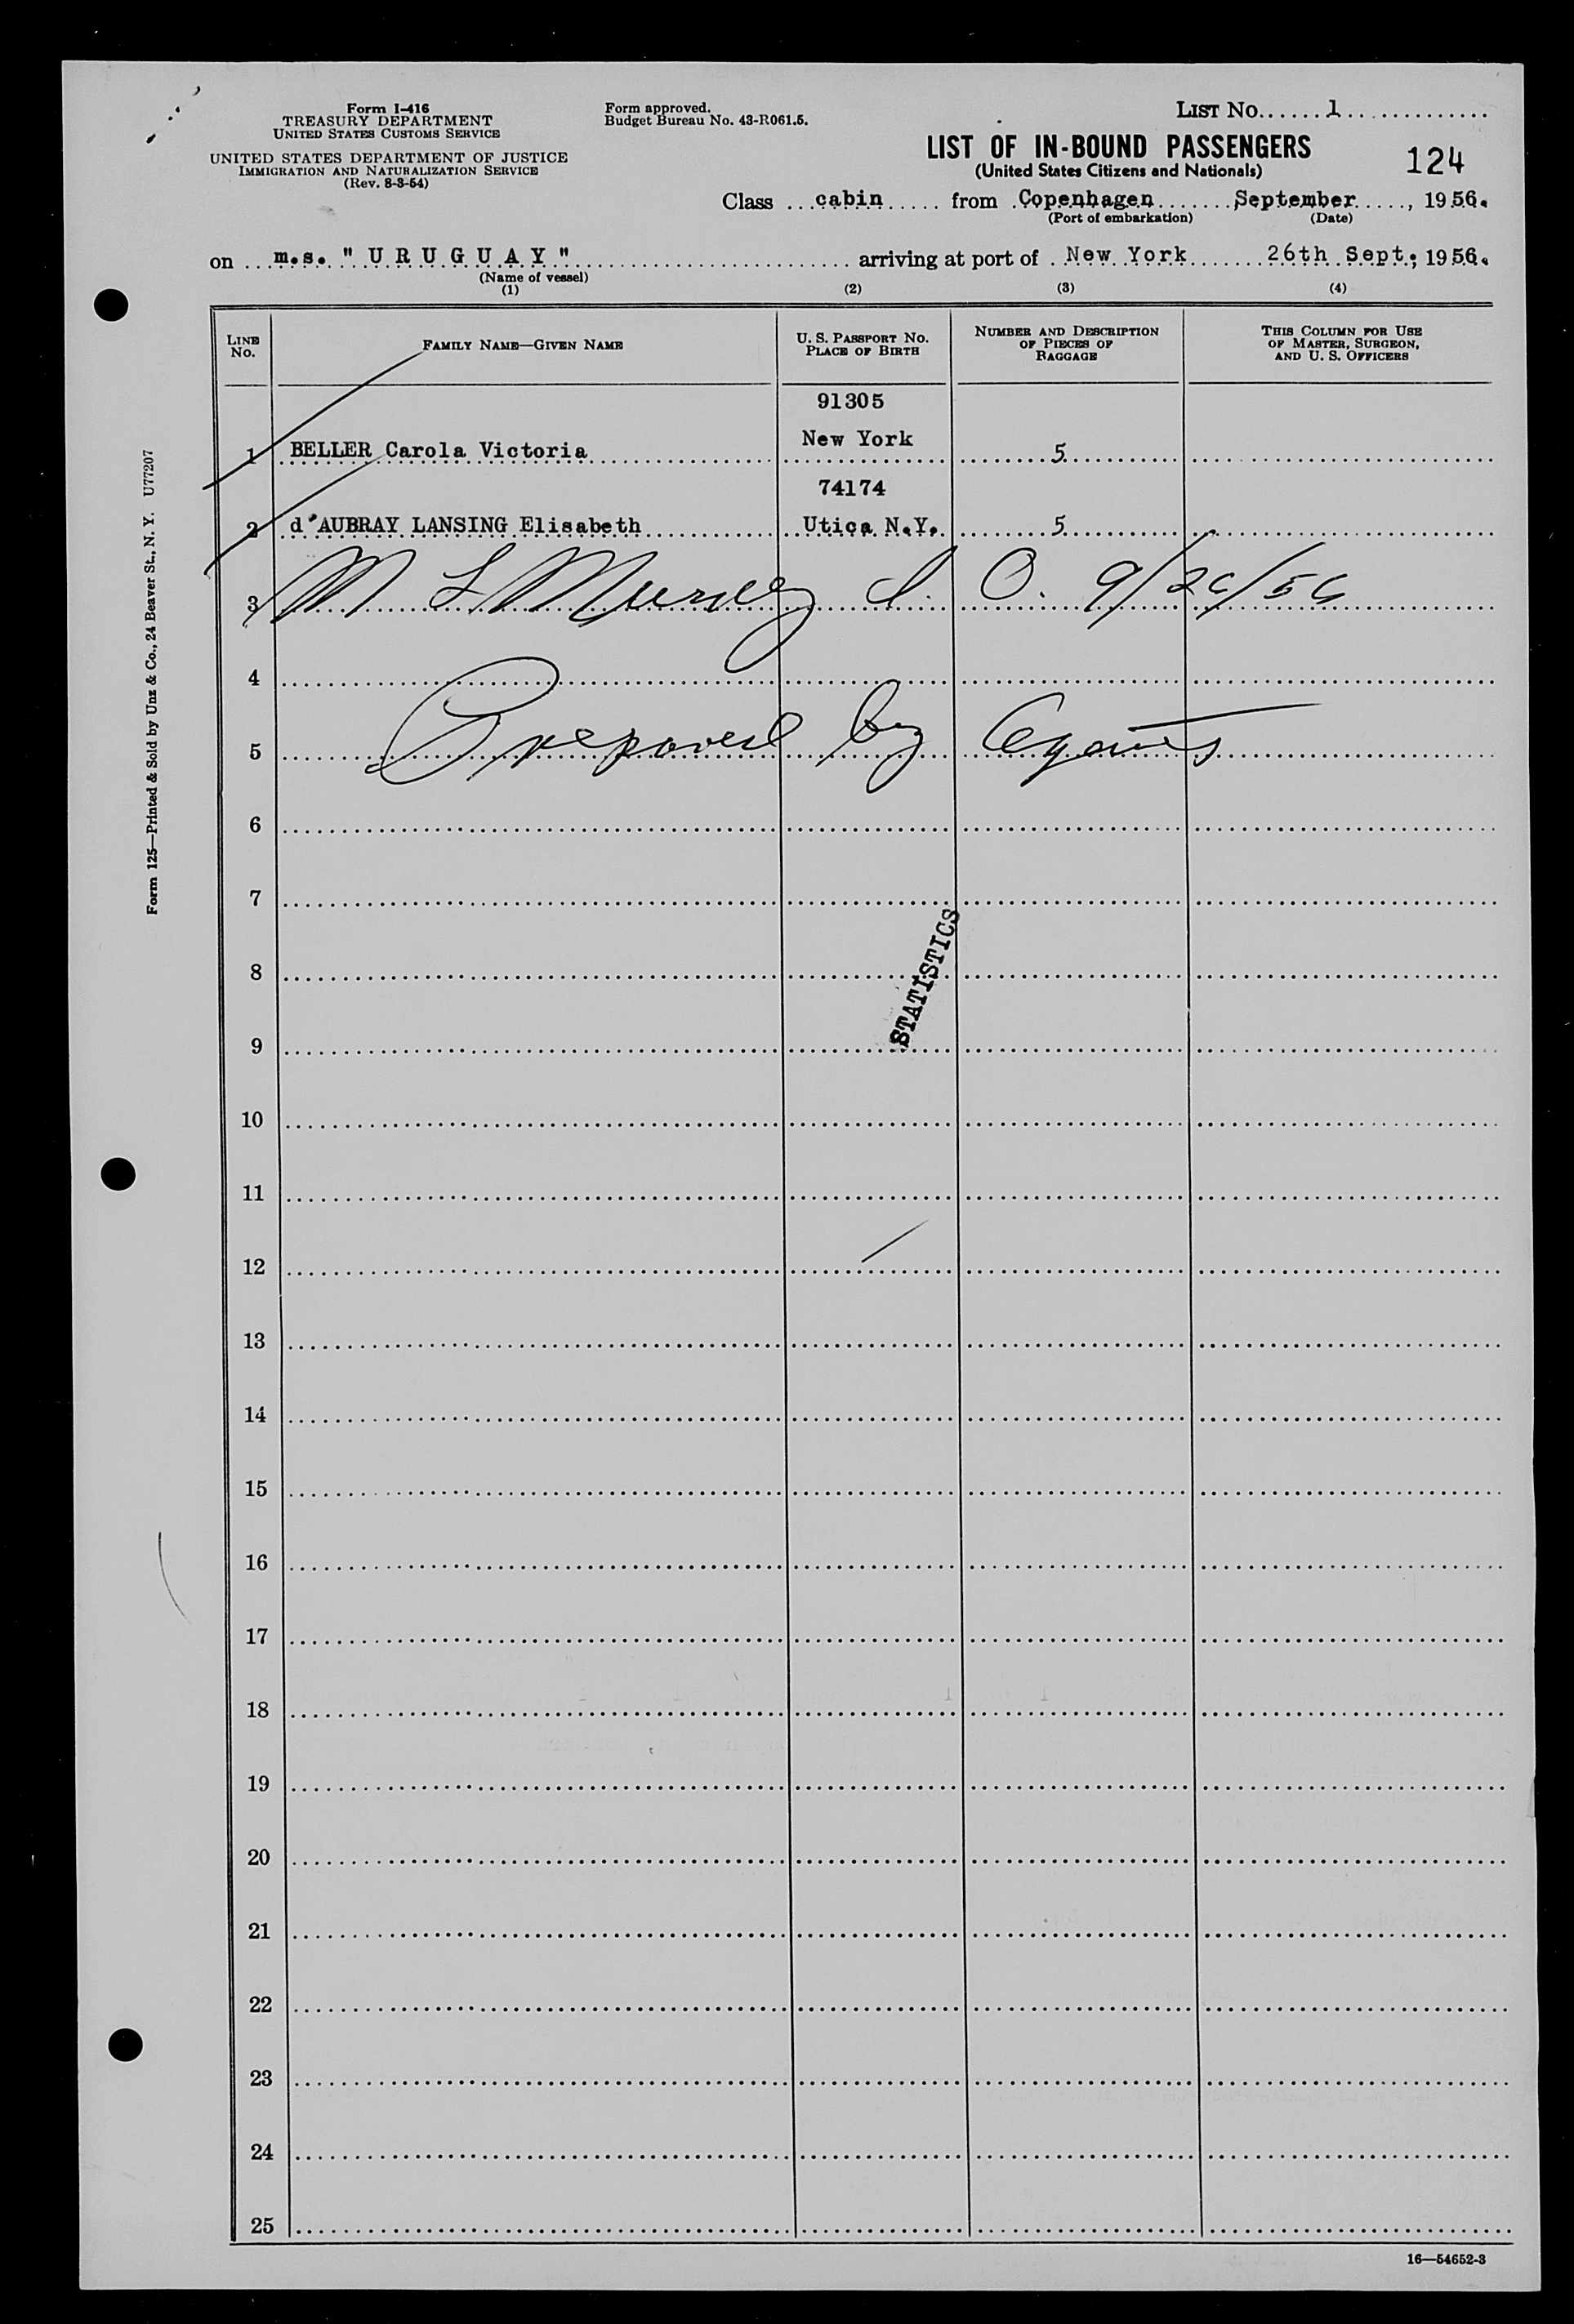 Form I-416
TREASURY DEPARTMENT
UNITED STATES CUSTOMS SERVICE
UNITED STATES DEPARTMENT OF JUSTICE
IMMIGRATION AND NATURALIZATION SERVICE
(Rev. 8-3-54)
Form approved.
Budget Bureau No. 43-R061.5.
LIST No. 1
LIST OF IN-BOUND PASSENGERS
(United States Citizens and Nationals)
124
Class cabin from Copenhagen September, 1956.
(Port of embarkation) (Date)
on m.s. "URUGUAY" arriving at port of New York 26th Sept.; 1956.
(Name of vessel)
(1) (2) (3) (4)
LINE No. FAMILY NAME—GIVEN NAME U. S. PASSPORT No. PLACE OF BIRTH NUMBER AND DESCRIPTION OF PIECES OF BAGGAGE THIS COLUMN FOR USE OF MASTER, SURGEON, AND U. S. OFFICERS
91305
1 BELLER Carola Victoria New York 5
74174
2 d'AUBRAY LANSING Elisabeth Utica N.Y. 5
3 M L Murray I. O. 9/26/56
4
Prepared by Agents
5
6
7
8
STATISTICS
9
10
11
12
13
14
15
16
17
18
19
20
21
22
23
24
25
16—54652-3
Form 125—Printed & Sold by Unz & Co., 24 Beaver St., N. Y. U77207